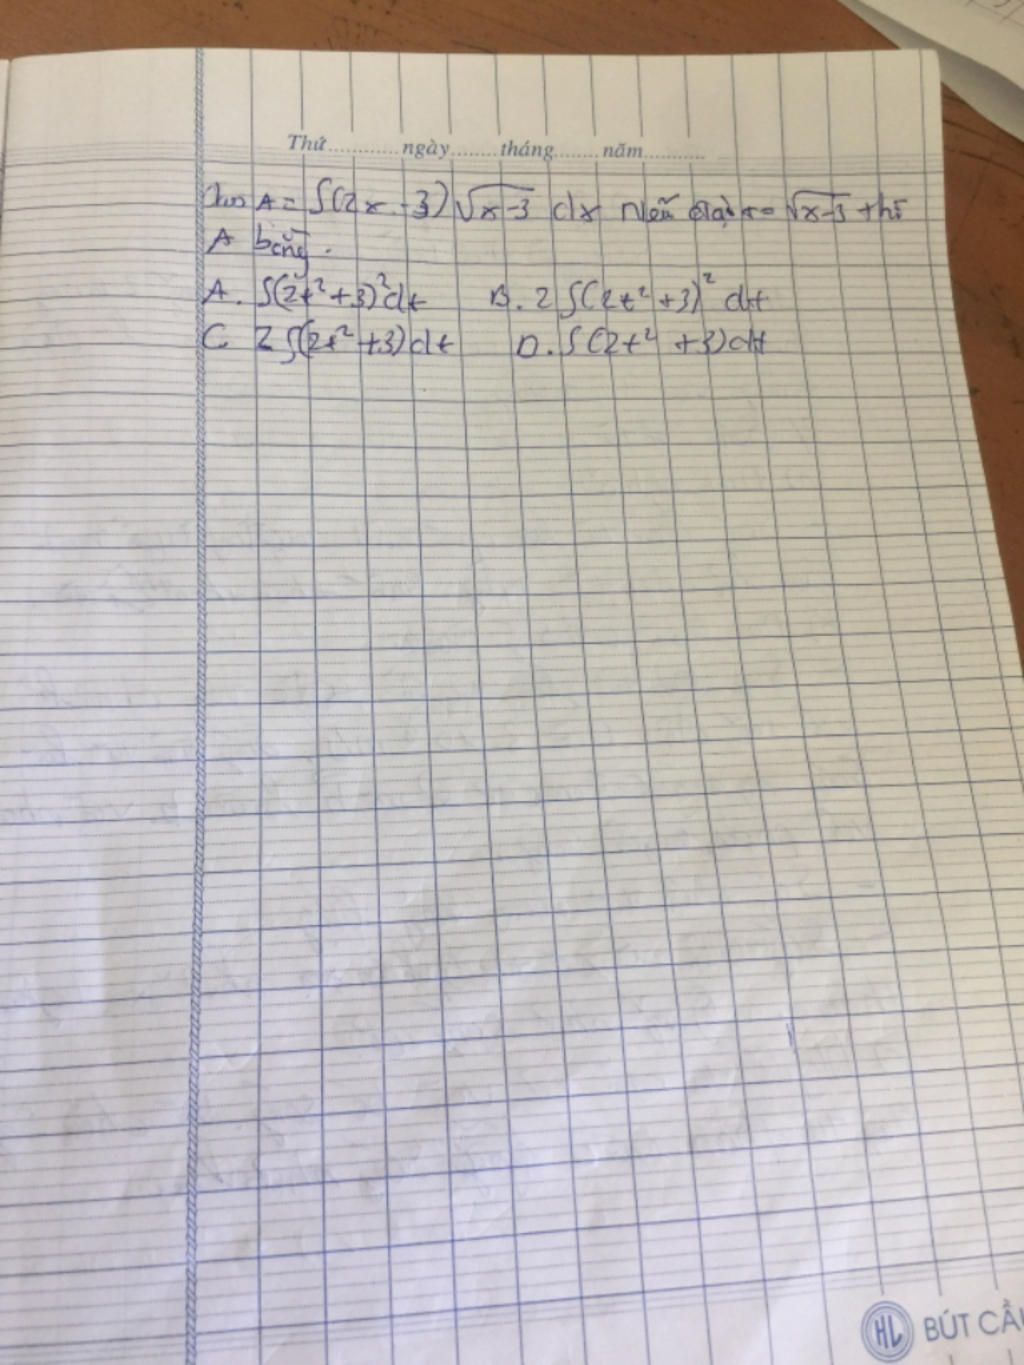 Thứ............ngày........tháng........năm...........
Cho A = ∫(2x - 3) √x-3 dx Nếu đặt t = √x-3 thì
A bằng.
A. ∫(2t² + 3)² dt B. 2 ∫(2t² + 3)² dt
C. 2 ∫(2t² + 3) dt D. ∫(2t⁴ + 3) dt
HL BÚT CẦ